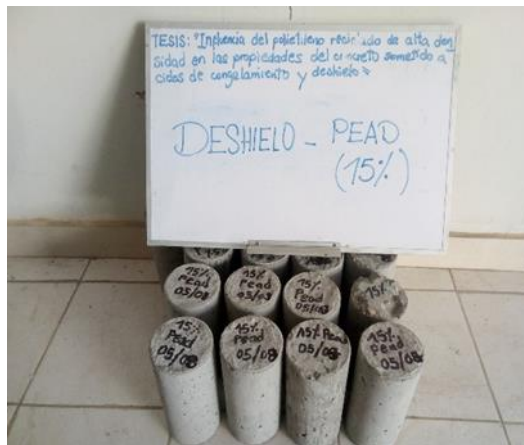 TESIS: "Influencia del polietileno reciclado de alta den
sidad en las propiedades del concreto sometido a
ciclos de congelamiento y deshielo"
DESHIELO - PEAD
(15%)
15%
Pead
05/08
15%
Pead
05/08
15%
Pead
05/08
15%
15%
Pead
05/08
15%
Pead
05/08
15% Pead
05/08
15%
Pead
05/08